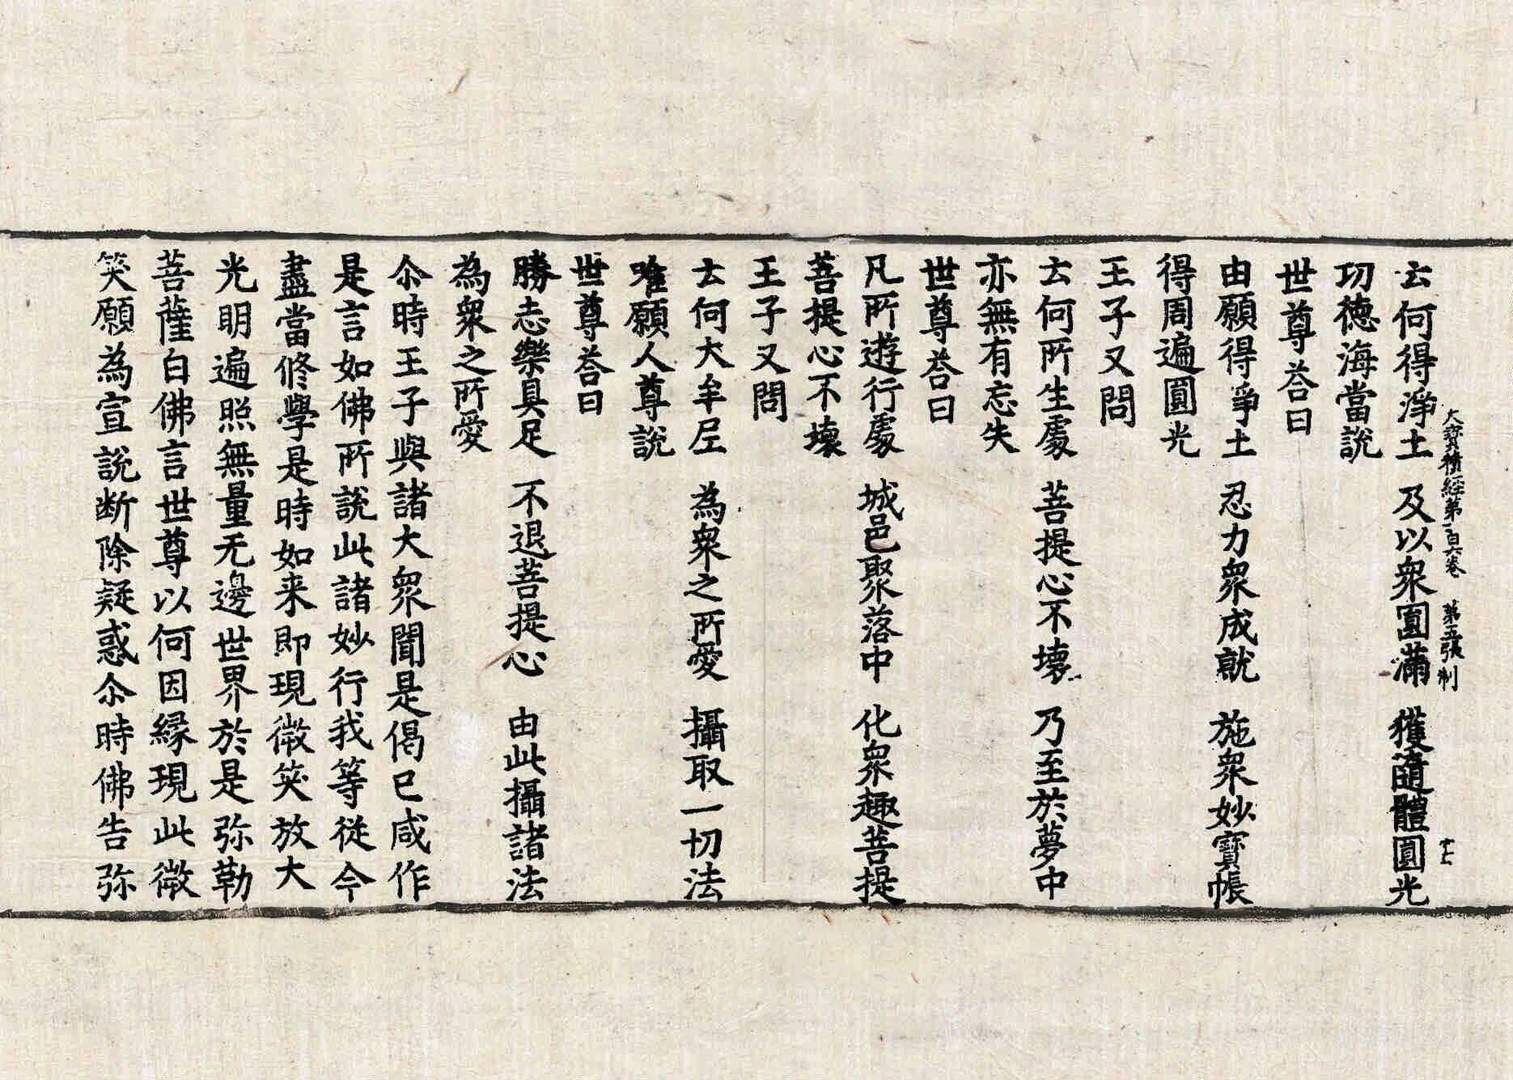 云何得淨土　及以衆圓滿　獲隨體圓光
大寶積經第一百六卷　第五張　制
功德海當說
世尊荅曰
由願得淨土　忍力衆成就　施衆妙寶帳
得周遍圓光
王子又問
云何所生處　菩提心不壞　乃至於夢中
亦無有忘失
世尊荅曰
凡所遊行處　城邑聚落中　化衆趣菩提
菩提心不壞
王子又問
云何大牟尼　為衆之所愛　攝取一切法
唯願人尊說
世尊荅曰
勝志樂具足　不退菩提心　由此攝諸法
為衆之所愛
尒時王子與諸大衆聞是偈已咸作
是言如佛所說此諸妙行我等從今
盡當修學是時如来即現微笑放大
光明遍照無量无邊世界於是弥勒
菩薩白佛言世尊以何因緣現此微
笑願為宣說断除疑惑尒時佛告弥